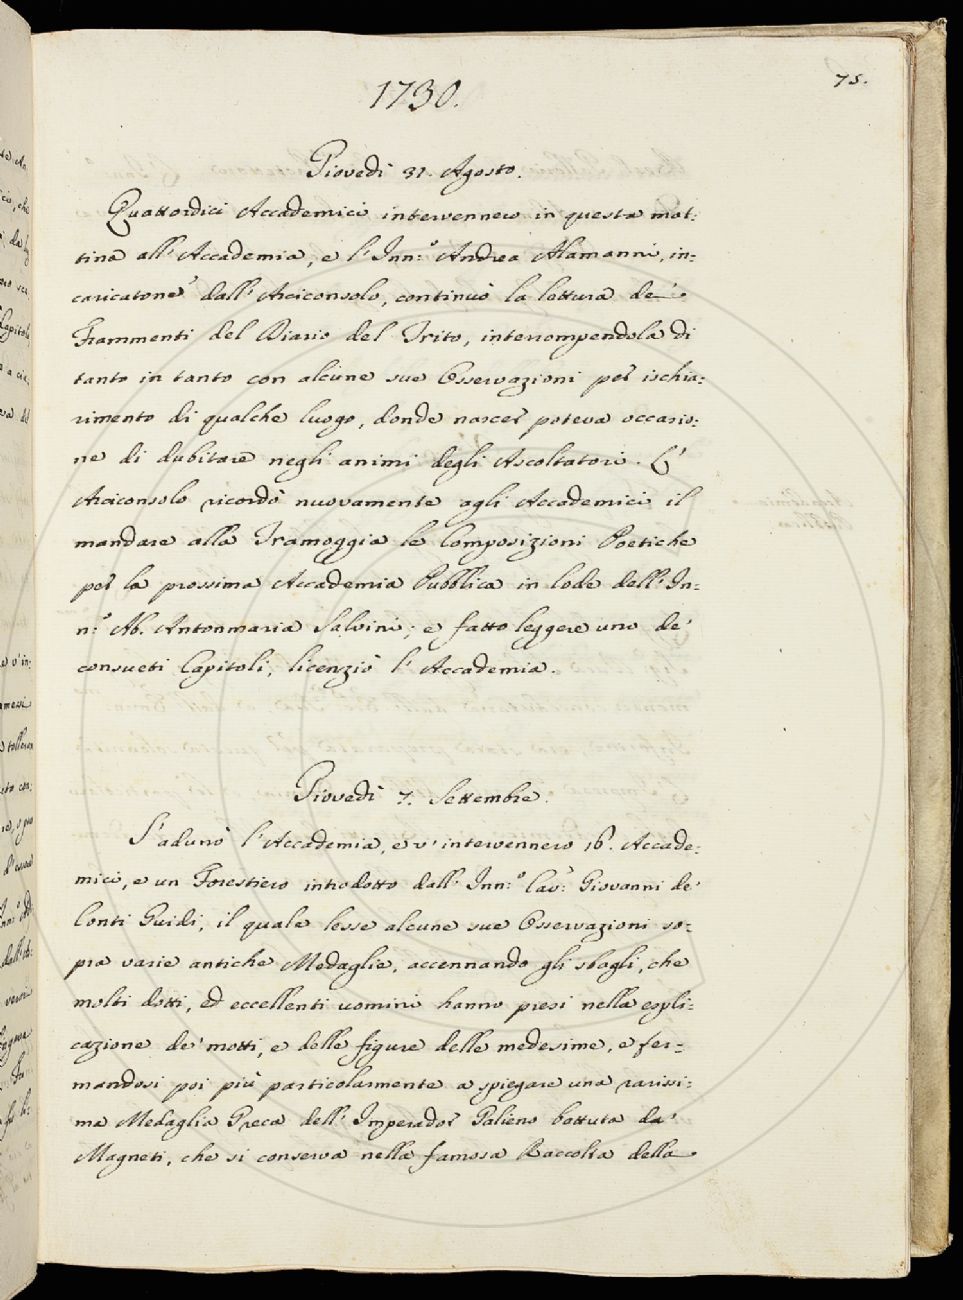 75.
1730.
Giovedì 31. Agosto.
Quattordici Accademici intervennero in questa mat:
tina all'Accademia, e l'Inn:º Andrea Alamanni, in=
caricatone dall'Arciconsolo, continuò la lettura de'
Frammenti del Diario del Trito, interrompendola di
tanto in tanto con alcune sue Osservazioni per ischia:
rimento di qualche luogo, donde nascer poteva occasio:
ne di dubitare negli animi degli Ascoltatori. L'
Arciconsolo ricordò nuovamente agli Accademici il
mandare alla Tramoggia le Composizioni Poetiche
per la prossima Accademia Pubblica in lode dell'In=
n:º Ab. Antonmaria Salvini; e fatto leggere uno de'
consueti Capitoli, licenziò l'Accademia.
Giovedì 7. Settembre.
S'adunò l'Accademia, e v'intervennero 16. Accade:
mici, e un Forestiero introdotto dall'Inn:º Cav: Giovanni de'
Conti Guidi, il quale lesse alcune sue Osservazioni so:
pra varie antiche Medaglie, accennando gli sbagli, che
molti dotti, ed eccellenti uomini hanno presi nella espli:
cazione de' motti, e delle figure delle medesime, e fer=
mandosi poi più particolarmente a spiegare una rarissi:
ma Medaglia Greca dell'Imperador Galieno battuta da'
Magneti, che si conserva nella famosa Raccolta della